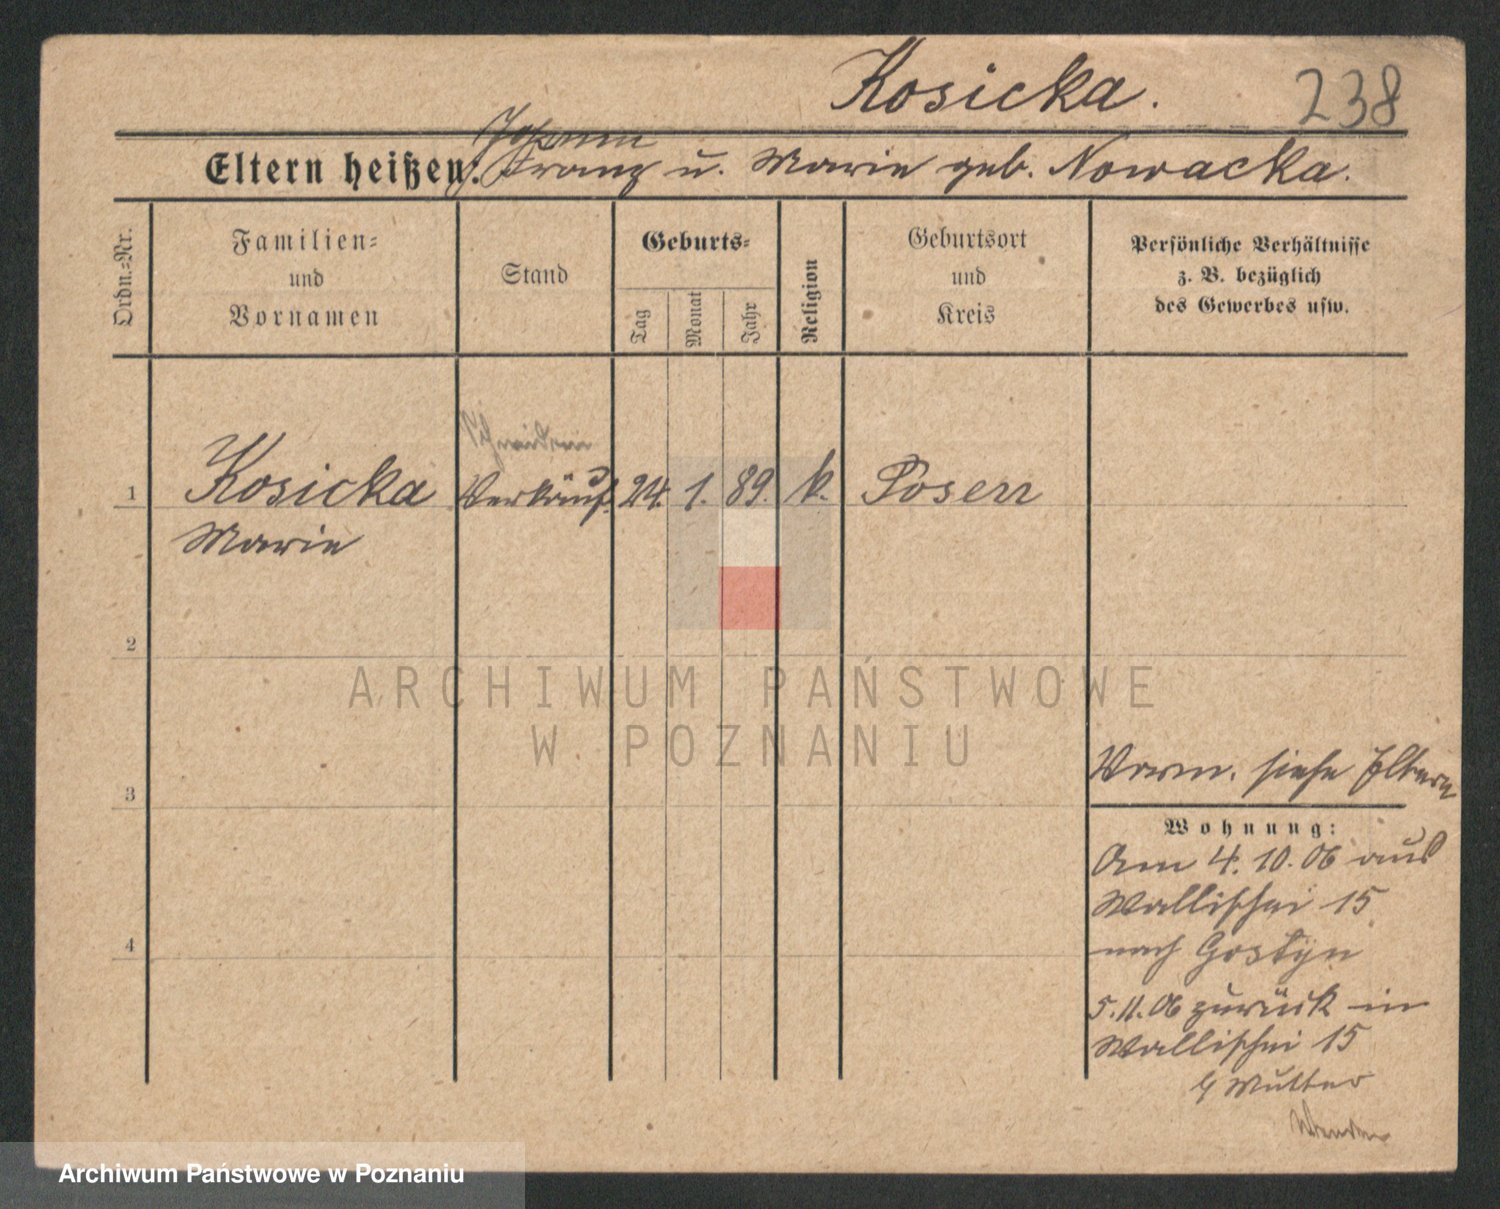 Kosicka. 238
Johann
Eltern heißen: Franz u. Marie geb. Nowacka.
Ordn.-Nr.
Familien-
und
Vornamen
Stand
Geburts-
Tag
Monat
Jahr
Religion
Geburtsort
und
Kreis
Persönliche Verhältnisse
z. B. bezüglich
des Gewerbes usw.
Schneiderin
1 Kosicka Verkäuf. 24. 1. 89. k. Posen
Marie
2
ARCHIWUM PAŃSTWOWE
W POZNANIU
Vorm. siehe Eltern
3
Wohnung:
Am 4. 10. 06 aus
Wallischei 15
4
nach Gostyn
5. 11. 06 zurück in
Wallischei 15
b/ Mutter
Wenden
Archiwum Państwowe w Poznaniu